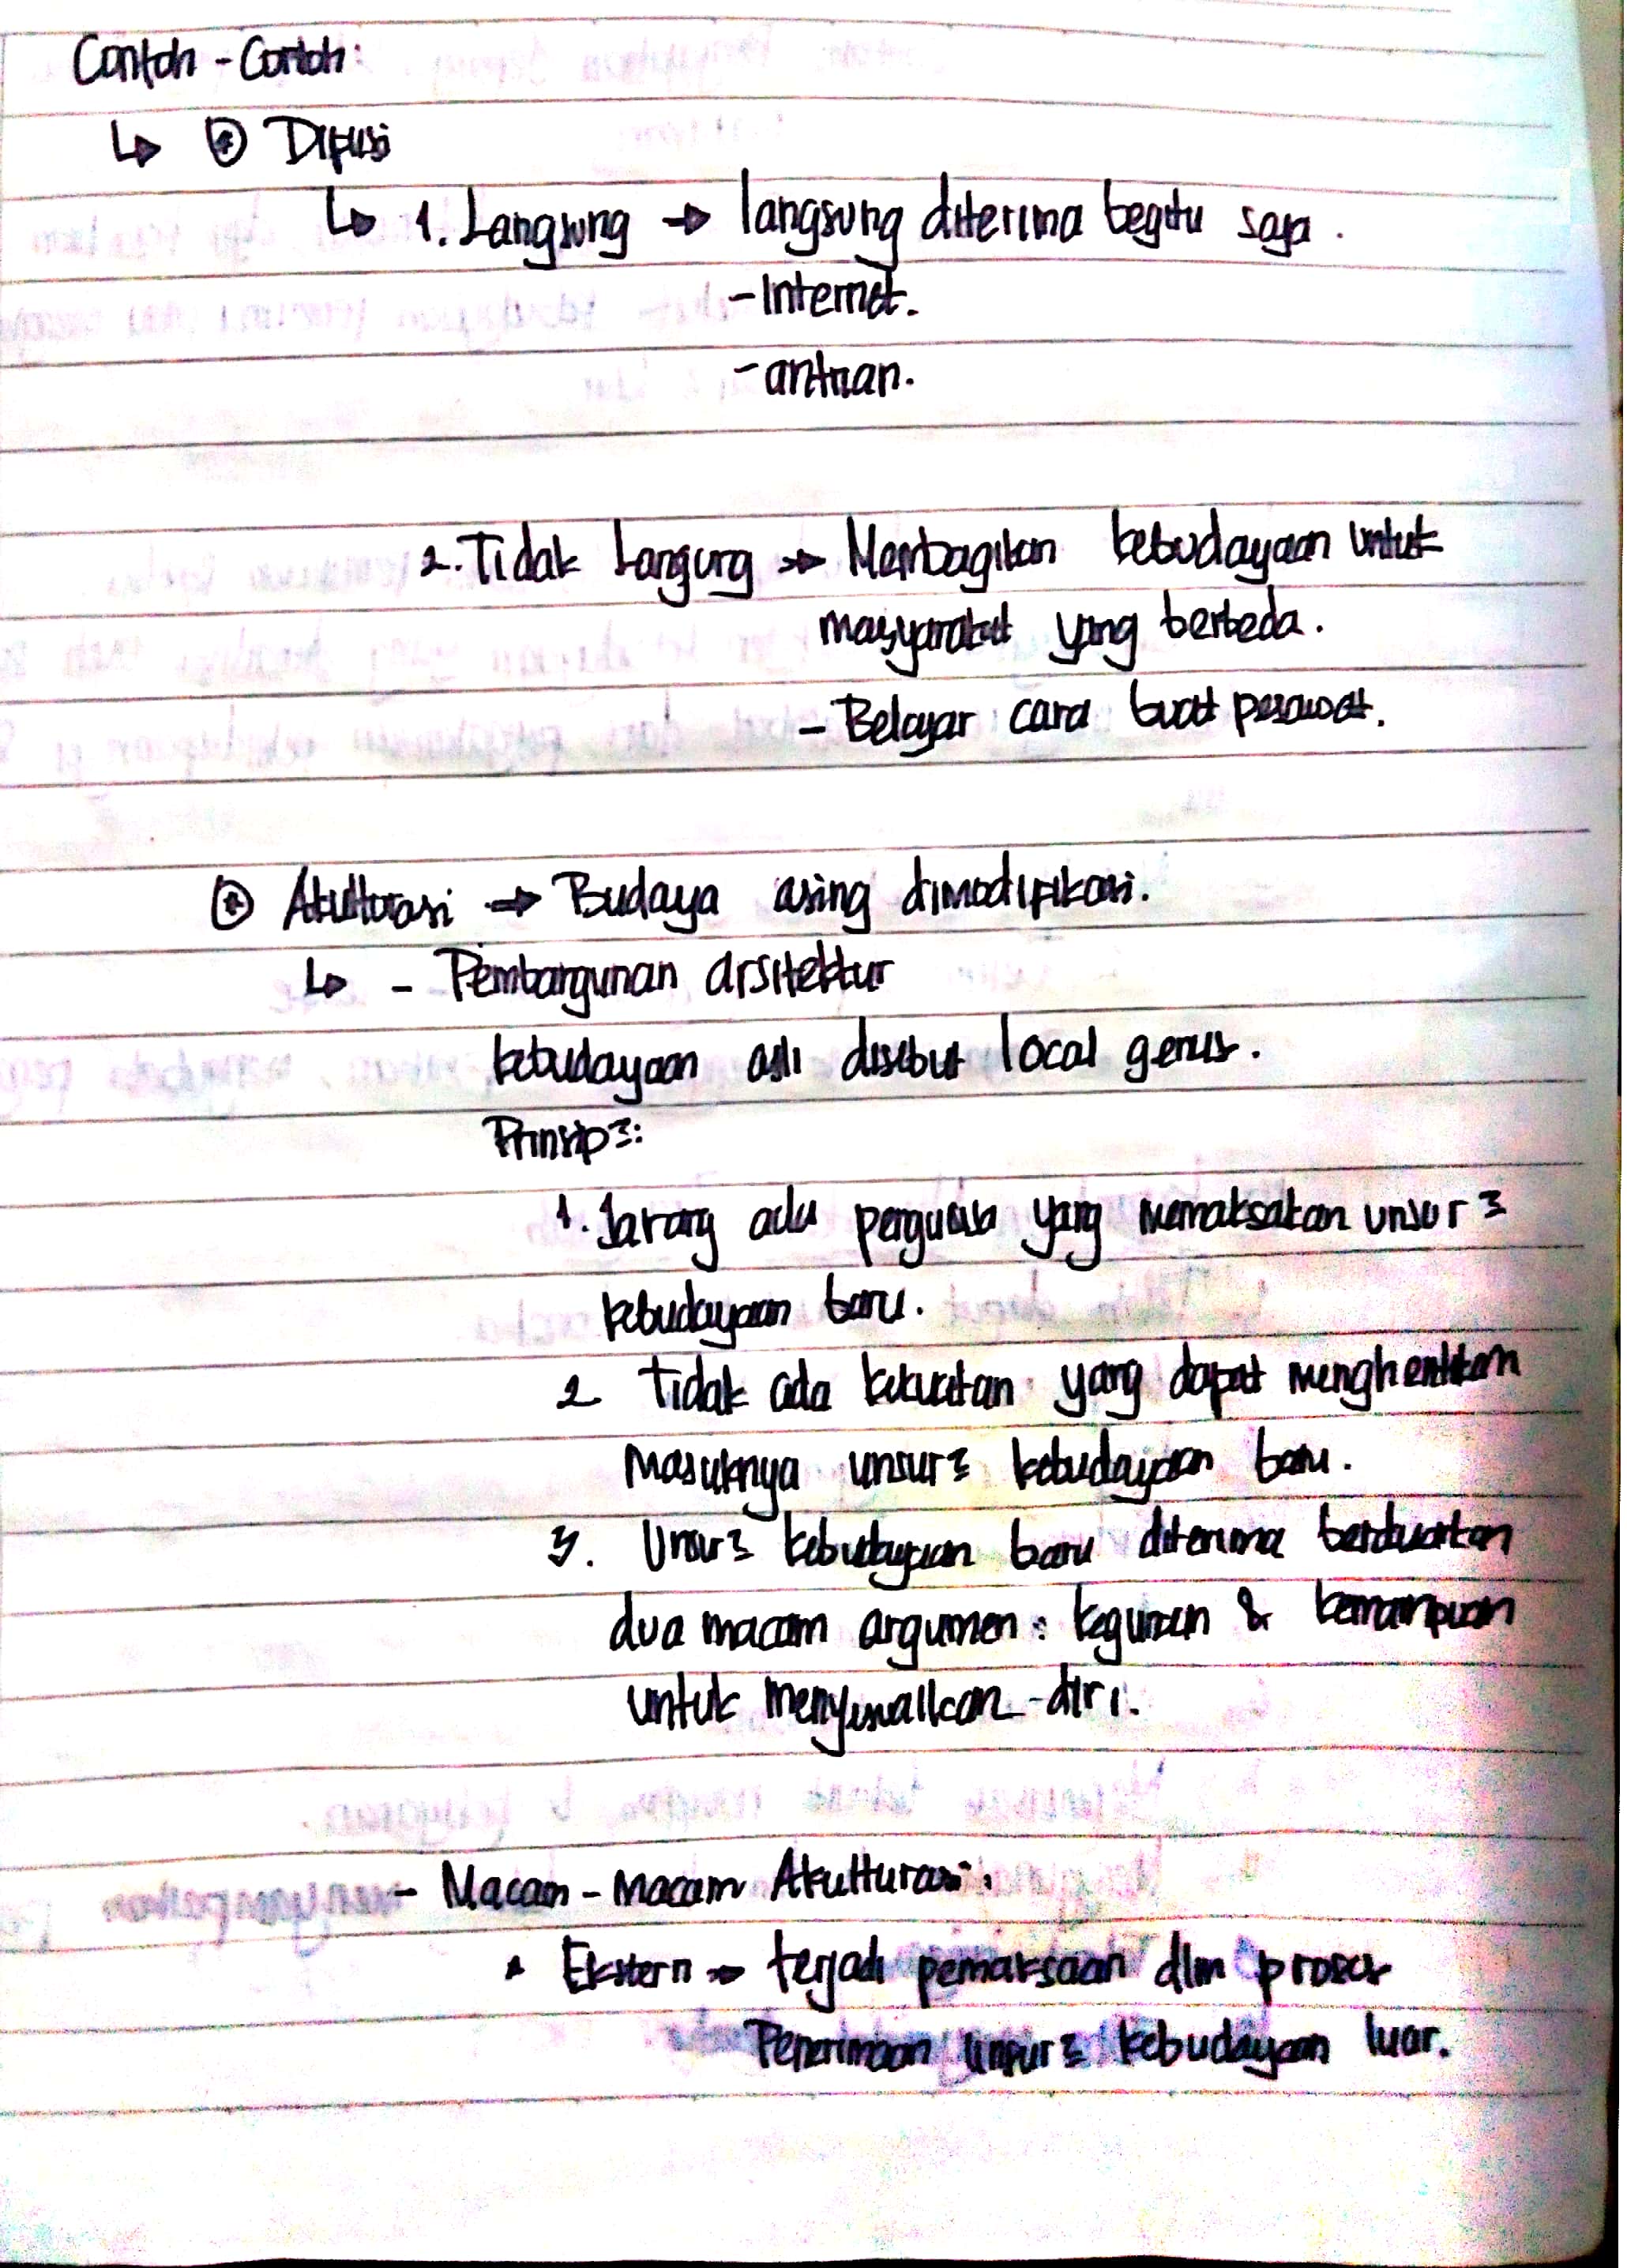 Contoh - Contoh:
↳ ⊛ Difusi
↳ 1. Langsung → langsung diterima begitu saja.
- Internet.
- antrian.
2. Tidak Langung → Membagikan kebudayaan untuk
masyarakat yang berbeda.
- Belajar cara buat pesawat.
⊛ Akulturasi → Budaya asing dimodifikasi.
↳ - Pembangunan arsitektur
kebudayaan asli disebut local genus.
Prinsip2:
1. Jarang ada penguasa yang memaksakan unsur2
kebudayaan baru.
2 Tidak ada kekuatan yang dapat menghentikan
masuknya unsur2 kebudayaan baru.
3. Unsur2 kebudayaan baru diterima berdasarkan
dua macam argumen: kegunaan & kemampuan
untuk menyesuaikan diri.
- Macam - macam Akulturasi:
* Ekstern → terjadi pemaksaan dlm proses
Penerimaan unsur2 kebudayaan luar.